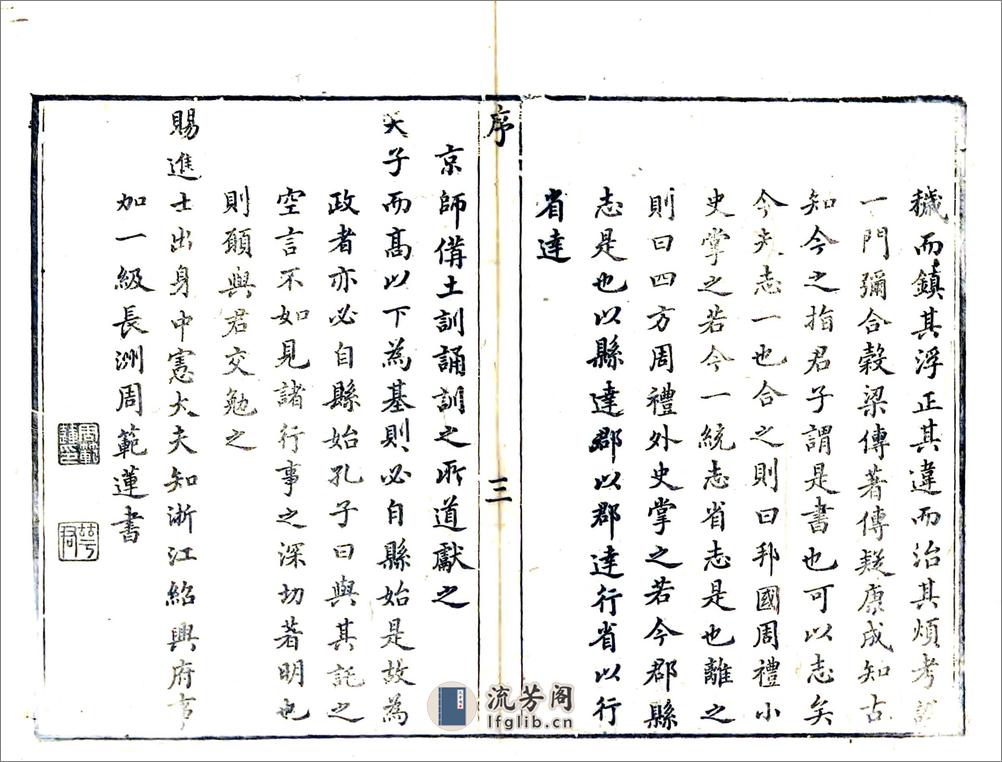 穢而鎮其浮正其違而治其煩考
一門彌合穀梁傳著傳疑康成知古
知今之指君子謂是書也可以志矣
今夫志一也合之則曰邦國周禮小
史掌之若今一統志省志是也離之
則曰四方周禮外史掌之若今郡縣
志是也以縣達郡以郡達行省以行
省達
序
三
京師備土訓誦訓之所道獻之
天子而高以下為基則必自縣始是故為
政者亦必自縣始孔子曰與其託之
空言不如見諸行事之深切著明也
則願與君交勉之
賜進士出身中憲大夫知浙江紹興府事
加一級長洲周範蓮書
周範蓮印
流芳阁
lfglib.cn